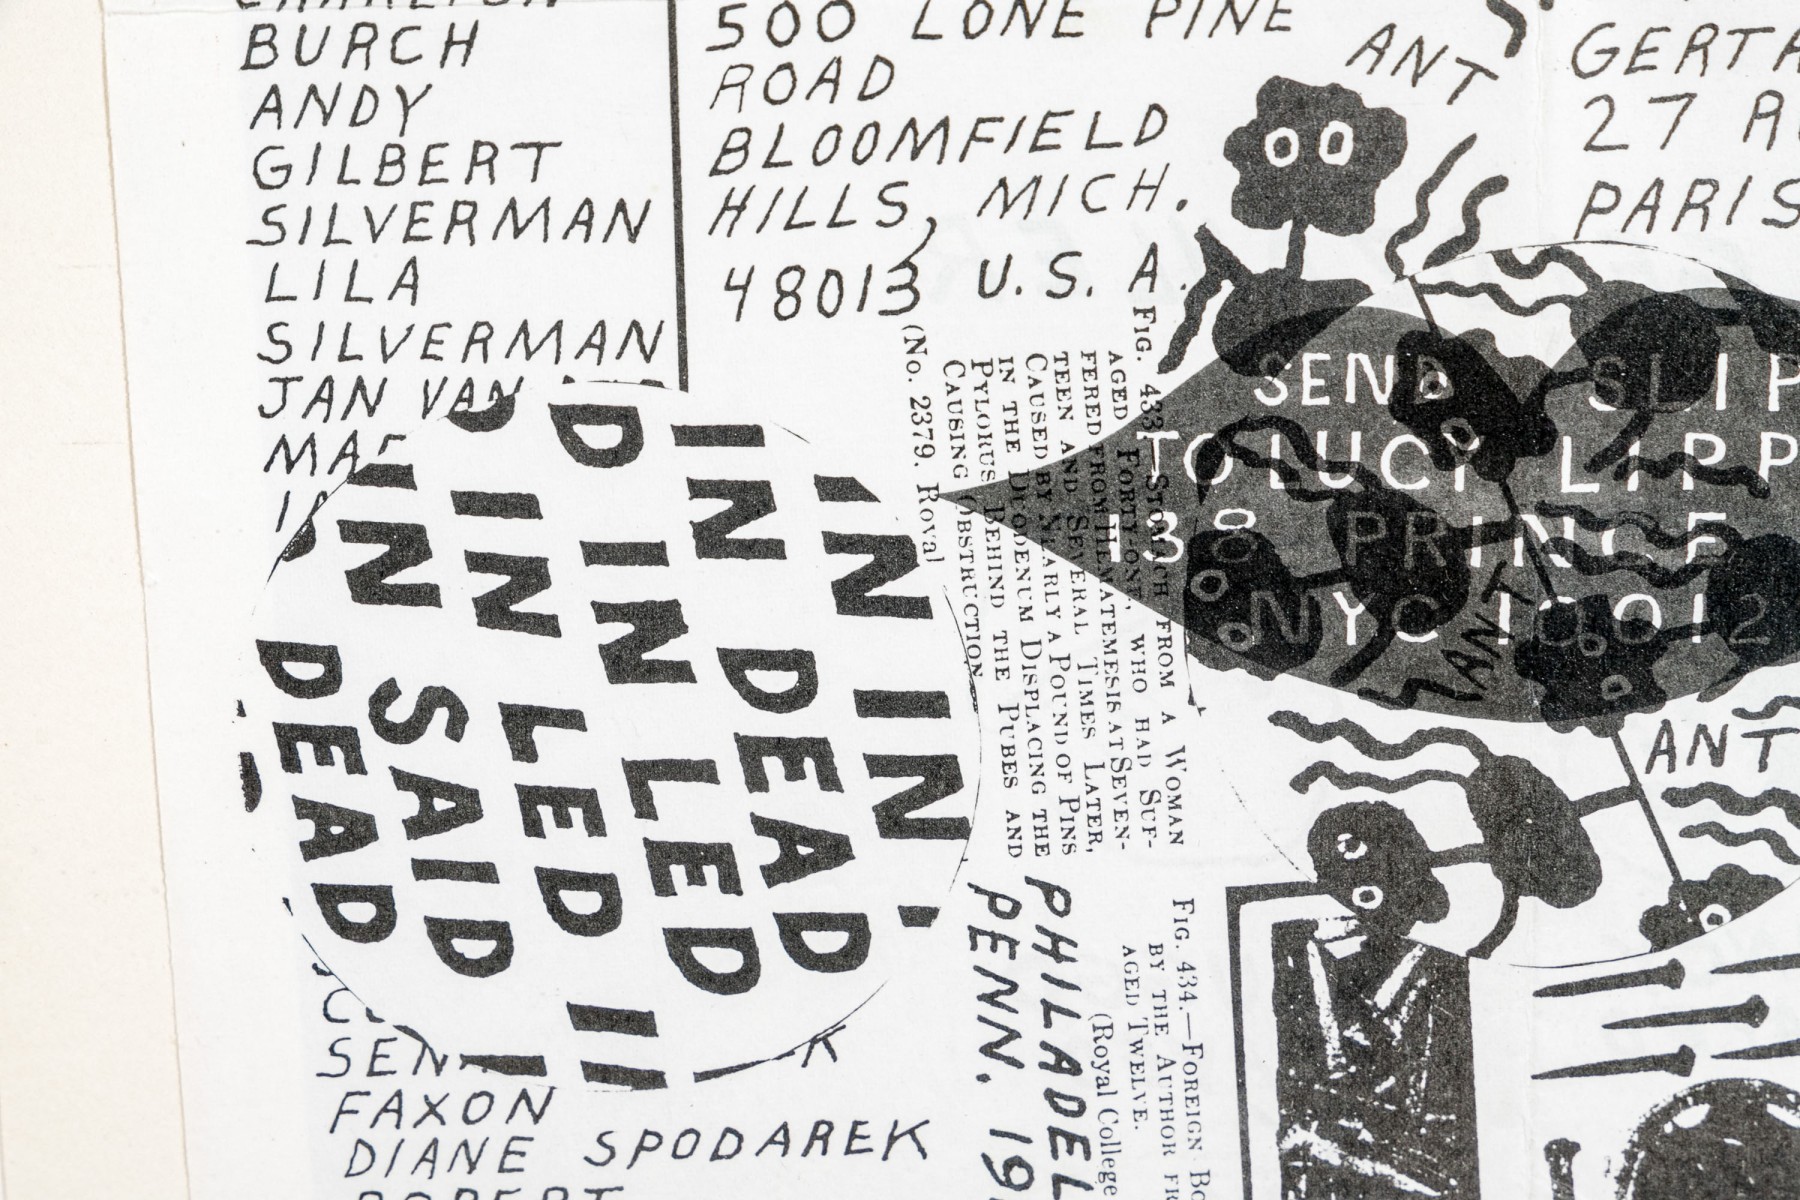 BURCH
ANDY
GILBERT
SILVERMAN
LILA
SILVERMAN
JAN VAN
500 LONE PINE
ROAD
BLOOMFIELD
HILLS, MICH.
48013 U.S.A.
ANT
27
PARIS
SEND SLIP
TO LUCY LIPP
138 PRINCE
NYC 10012
ANT
ANT
FIG. 433.—STOMACH FROM A WOMAN
AGED FORTY-ONE, WHO HAD SUF-
FERED FROM HEMATEMESIS AT SEVEN-
TEEN AND SEVERAL TIMES LATER,
CAUSED BY NEARLY A POUND OF PINS
IN THE DUODENUM DISPLACING THE
PYLORUS BEHIND THE PUBES AND
CAUSING OBSTRUCTION
(No. 2379. Royal
IN IN
IN DEAD
D IN LED
IN LED
IN SAID
DEAD
FIG. 434.—FOREIGN
BY THE AUTHOR
AGED TWELVE.
(Royal College
PHILADEL
PENN. 19
FAXON
DIANE SPODAREK